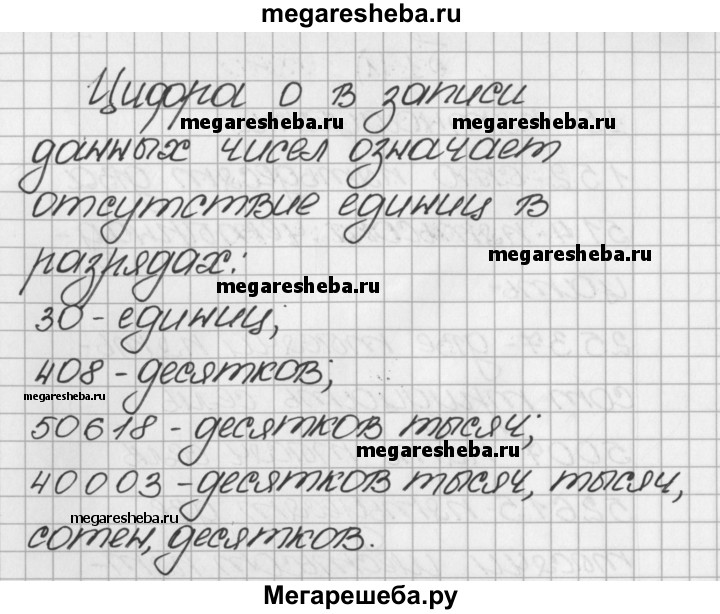 megaresheba.ru
Цифра 0 в записи
megaresheba.ru megaresheba.ru
данных чисел означает
отсутствие единиц в
разрядах: megaresheba.ru
megaresheba.ru
30 - единиц;
408 - десятков;
megaresheba.ru
50618 - десятков тысяч;
megaresheba.ru
40003 - десятков тысяч, тысяч,
megaresheba.ru
сотен, десятков.
Мегарешеба.ру